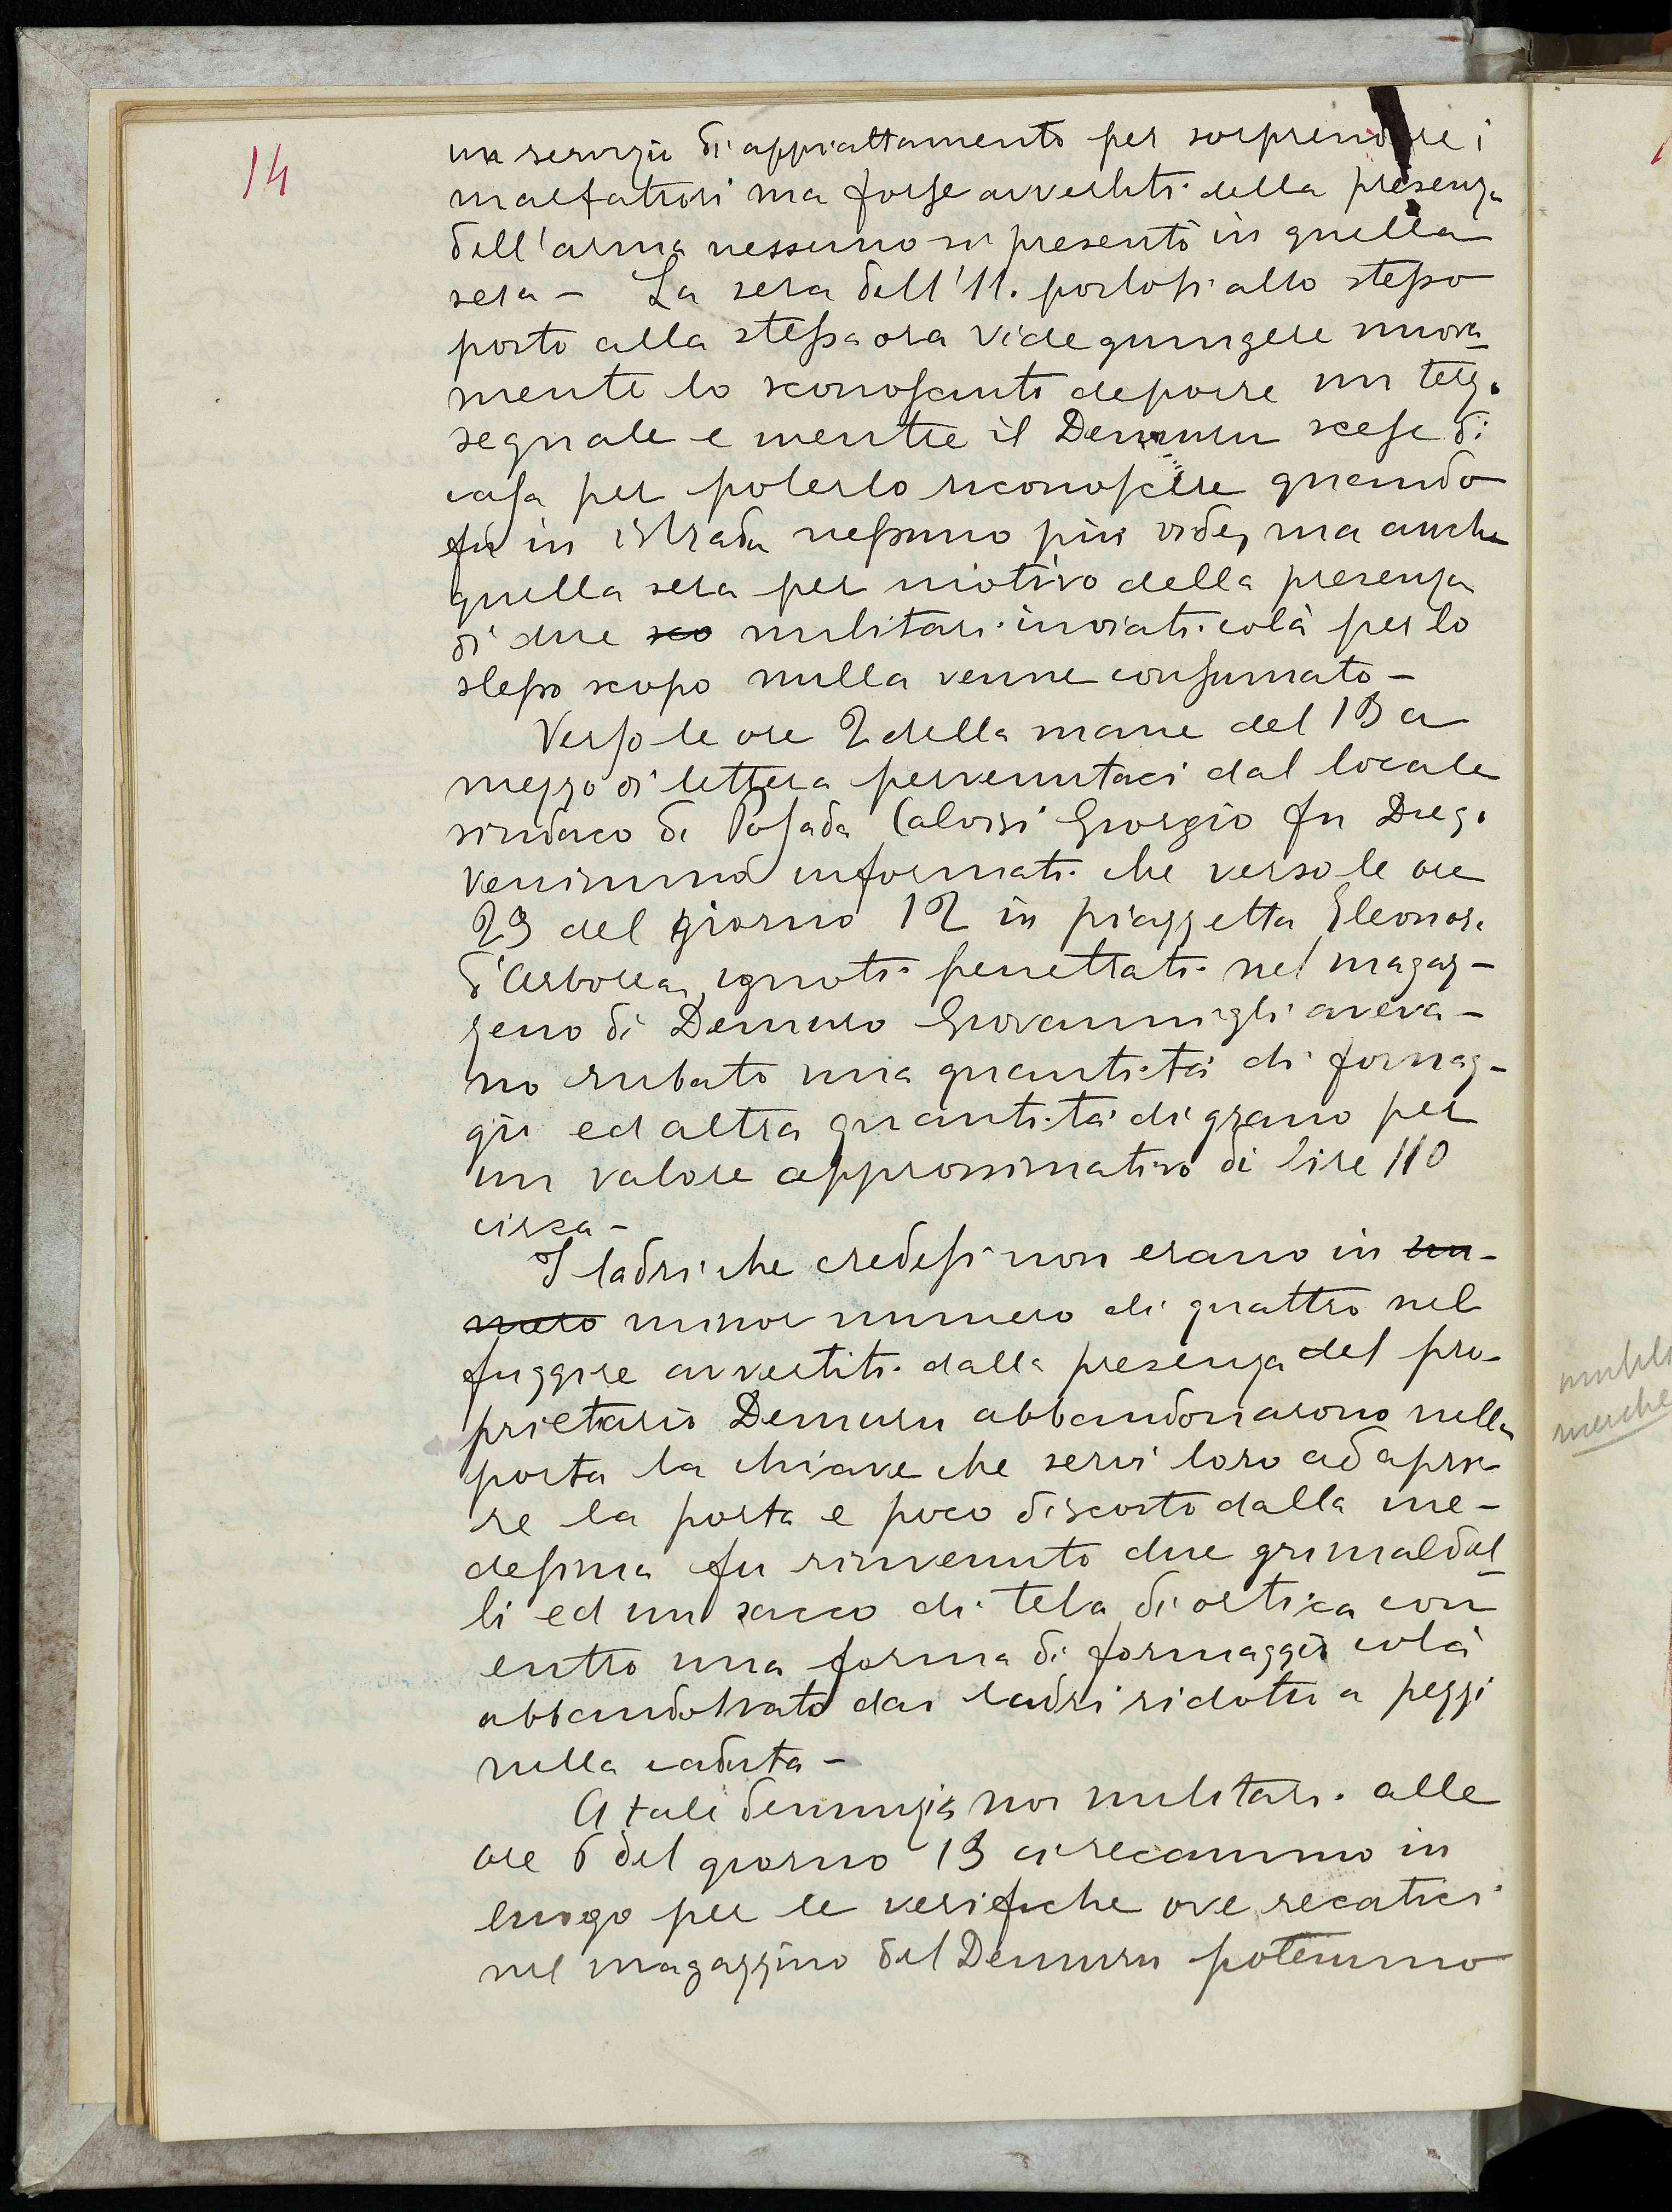 14
un servizio di appiattamento per sorprendere i
malfattori ma forse avvertiti della presenza
dell'arma nessuno si presentò in quella
sera – La sera dell'11. portosi allo stesso
posto alla stessa ora vide giungere nuova
mente lo sconosciuto deporre un terzo
segnale e mentre il Demuru scese di
casa per poterlo riconoscere quando
fù in istrada nessuno più vide, ma anche
quella sera per motivo della presenza
di due sco militari inviati colà per lo
stesso scopo nulla venne consumato –
Verso le ore 2 della mane del 13 a
mezzo di lettera pervenutaci dal locale
sindaco di Posada Caloisi Giorgio fu Diego
venimmo informati che verso le ore
23 del giorno 12 in piazzetta Eleonora
d'Arborea, ignoti penettrati nel magaz-
zeno di Demuro Giovannigli aveva-
no rubato una quantità di formag-
gio ed altra quantità di grano per
un valore approssimativo di lire 110
circa –
I ladri che credesi non erano in nu-
mero minor numero di quattro nel
fuggire avvertiti dalla presenza del pro-
prietario Demuru abbandonarono nella
porta la chiave che servì loro ad apri
re la porta e poco discosto dalla me-
desima fu rinvenuto due grimaldel
li ed un sacco di tela di ortica con
entro una forma di formaggio colà
abbandonato dai ladri ridotto a pezzi
nella caduta –
A tale denunzia noi militari alle
ore 6 del giorno 13 ci recammo in
luogo per le verifiche ove recatici
nel magazzino del Demuru potemmo